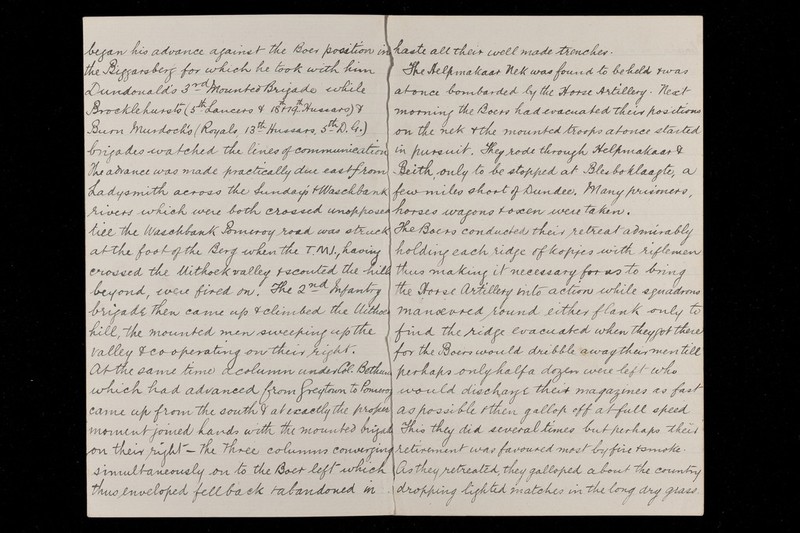 began his advance against the Boer position in
the Biggarsberg for which he took with him
Dundonald's 3rd Mounted Brigade while
Brocklehursts (5th Lancers & 18th & 19th Hussars) &
Burn Murdochs (Royals, 13th Hussars, 5th D.G.)
brigades watched the lines of communication
The advance was made practically due east from
Ladysmith across the Sundays & Waschbank
rivers which were both crossed unopposed
till the Waschbank Pomeroy road was struck
at the foot of the Berg when the T.M.I., having
crossed the Uithoek valley & scouted the hills
beyond, were fired on. The 2nd Infantry
brigade then came up & climbed the Uithoek
hill, the mounted men sweeping up the
valley & co-operating on their right.
At the same time a column under Col. Bethune
which had advanced from Greytown to Pomeroy
came up from the south & at exactly the proper
moment joined hands with the mounted brigade
on their right – the three columns converging
simultaneously on to the Boer left which
thus enveloped fell back & abandoned in
haste all their well made trenches.
The Helpmakaar Nek was found to be held & was
at once bombarded by the Horse Artillery. Next
morning the Boers had evacuated their positions
on the nek & the mounted troops at once started
in pursuit. They rode through Helpmakaar &
Beith, only to be stopped at Blesboklaagte, a
few miles short of Dundee. Many prisoners,
horses wagons & oxen were taken.
The Boers conducted their retreat admirably
holding each ridge of kopjes with riflemen
thus making it necessary for us to bring
the Horse Artillery into action while squadrons
manœvred round either flank only to
find the ridge evacuated when they got there
for the Boers would dribble away their men till
perhaps only half a dozen were left who
would discharge their magazines as fast
as possible & then gallop off at full speed
This they did several times but perhaps their
retirement was favoured most by fire & smoke.
As they retreated, they galloped about the country
dropping lighted matches in the long dry grass